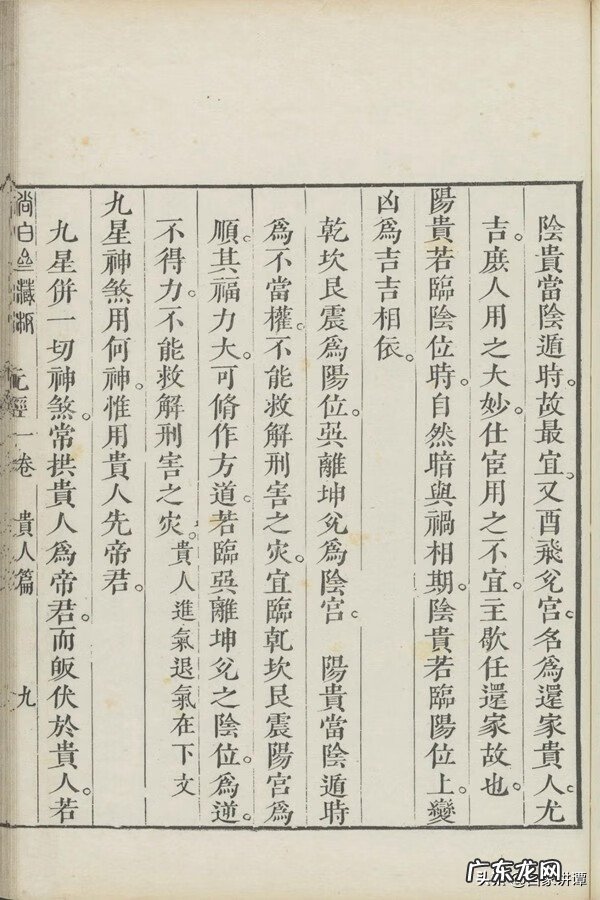 陰貴當陰遁時。故最宜。又酉飛兊宮。名為還家貴人。尤
吉。庶人用之大妙。仕宦用之不宜。主歇任還家故也。
陽貴若臨陰位時。自然暗與禍相期。陰貴若臨陽位上。變
凶為吉吉相依。
乾坎艮震為陽位。巽離坤兊為陰宮。 陽貴當陰遁時
為不當權。不能救解刑害之災。宜臨乾坎艮震陽宮為
順。其福力大。可脩作方道。若臨巽離坤兊之陰位。為逆。
不得力。不能救解刑害之災。貴人進氣退氣在下文
九星神煞用何神。惟用貴人先帝君。
九星併一切神煞。常拱貴人為帝君。而皈伏於貴人。若
尚白齋藏版 元經一卷 貴人篇 九
广东龙网